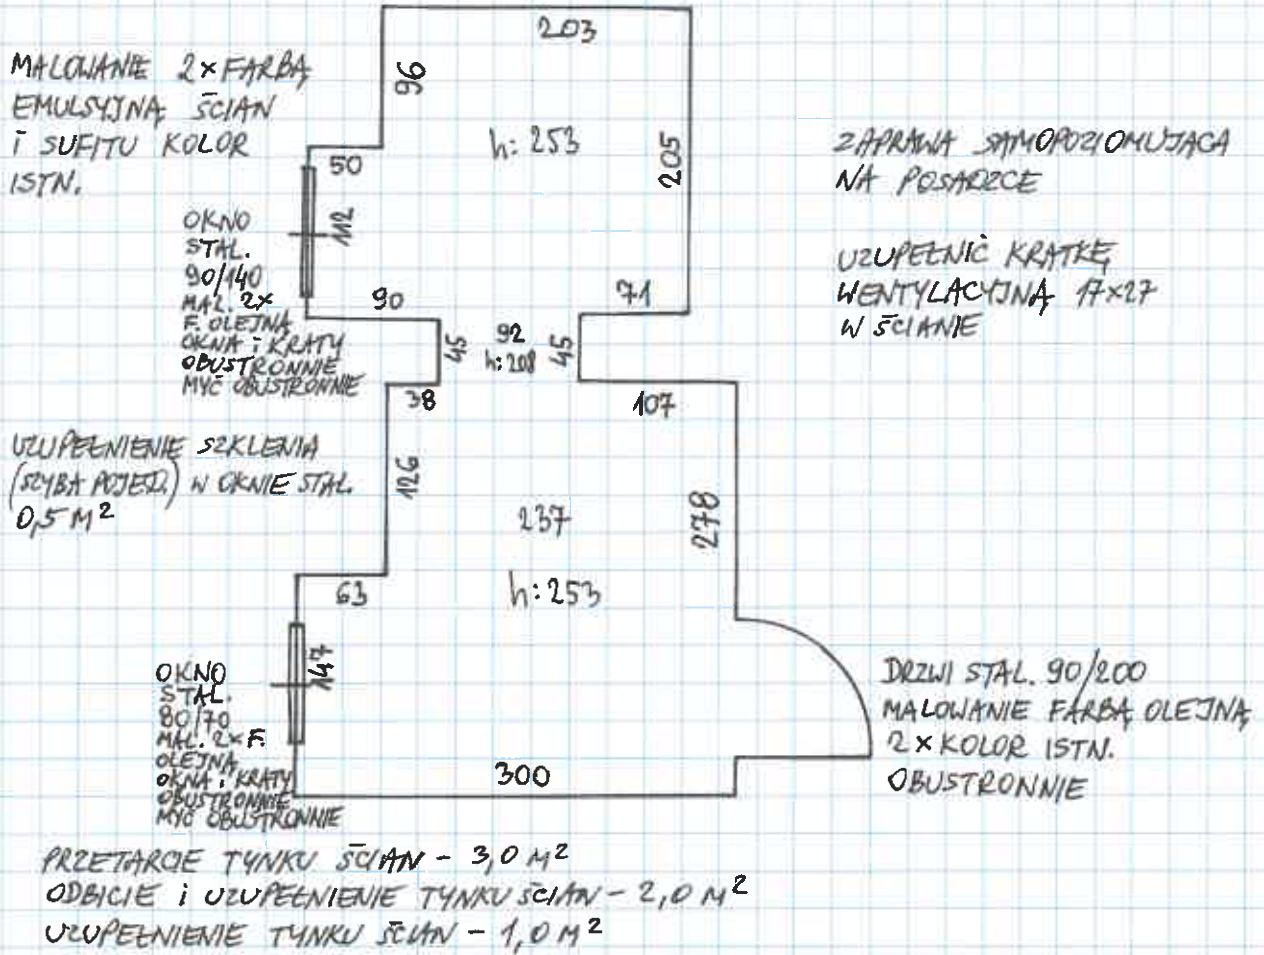 203
MALOWANIE 2x FARBĄ
EMULSYJNĄ ŚCIAN
i SUFITU KOLOR
ISTN.
96
h: 253
205
50
112
OKNO
STAL.
90/140
MAL. 2x
F. OLEJNĄ
OKNA i KRATY
OBUSTRONNIE
MYĆ OBUSTRONNIE
90
71
45
92
h: 208
45
38
107
ZAPRAWA SAMOPOZIOMUJĄCA
NA POSADZCE
UZUPEŁNIĆ KRATKĘ
WENTYLACYJNĄ 17x27
W ŚCIANIE
UZUPEŁNIENIE SZKLENIA
(SZYBA POJED.) W OKNIE STAL.
0,5 M²
126
237
278
h: 253
63
147
OKNO
STAL.
80/70
MAL. 2x F.
OLEJNĄ
OKNA i KRATY
OBUSTRONNIE
MYĆ OBUSTRONNIE
300
DRZWI STAL. 90/200
MALOWANIE FARBĄ OLEJNĄ
2x KOLOR ISTN.
OBUSTRONNIE
PRZETARCIE TYNKU ŚCIAN - 3,0 M²
ODBICIE i UZUPEŁNIENIE TYNKU ŚCIAN - 2,0 M²
UZUPEŁNIENIE TYNKU ŚCIAN - 1,0 M²